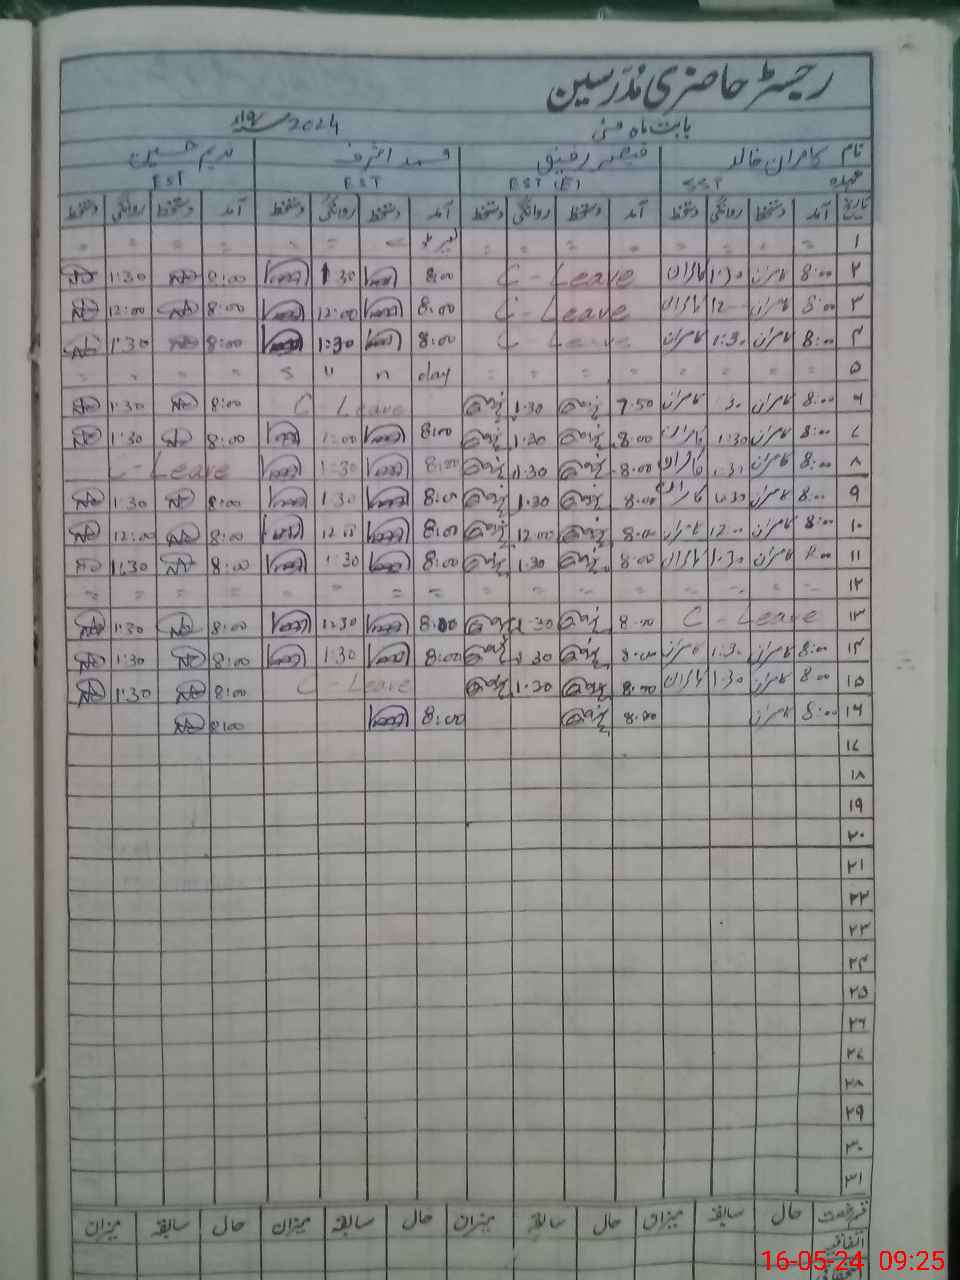 رجسٹر حاضری مُدرّسین
بابت ماہ مئی 2024
نام کامران خالد قیصر رفیق محمد اشرف ندیم حسین
عہدہ SST EST (E) EST EST
تاریخ آمد دستخط روانگی دستخط آمد دستخط روانگی دستخط آمد دستخط روانگی دستخط آمد دستخط روانگی دستخط
۱
۲ 8:00 کامران 1:30 کامران C - Leave 8:00 1:30 8:00 1:30
۳ 8:00 کامران 12-- کامران C - Leave 8:00 12:00 8:00 12:00
۴ 8:00 کامران 1:30 کامران C - Leave 8:00 1:30 8:00 1:30
۵ day n u S
۶ 8:00 کامران 30 کامران 7.50 1.30 C - Leave 8:00 1:30
۷ 8:00 کامران 1:30 کامران 8.00 1.30 8:00 1:00 8:00 1:30
۸ 8:00 کامران 1:31 کامران 8.00 1.30 8:00 1:30 C - Leave
۹ 8:00 کامران 1:30 کامران 8.00 1.30 8:00 1:30 8:00 1:30
۱۰ 8:00 کامران 12:00 کامران 8.00 12.00 8:00 12:00 8:00 12:00
۱۱ 8:00 کامران 1:30 کامران 8.00 1.30 8:00 1:30 8:00 1:30
۱۲
۱۳ C - Leave 8.00 1.30 8:00 1:30 8:00 1:30
۱۴ 8:00 کامران 1:30 کامران 8.00 1.30 8:00 1:30 8:00 1:30
۱۵ 8:00 کامران 1:30 کامران 8.00 1.30 C - Leave 8:00 1:30
۱۶ 8:00 کامران 8.00 8:00 8:00
۱۷
۱۸
۱۹
۲۰
۲۱
۲۲
۲۳
۲۴
۲۵
۲۶
۲۷
۲۸
۲۹
۳۰
۳۱
قسم رخصت حال سابقہ میزان حال سابقہ میزان حال سابقہ میزان حال سابقہ میزان
اتفاقیہ
16-05-24 09:25